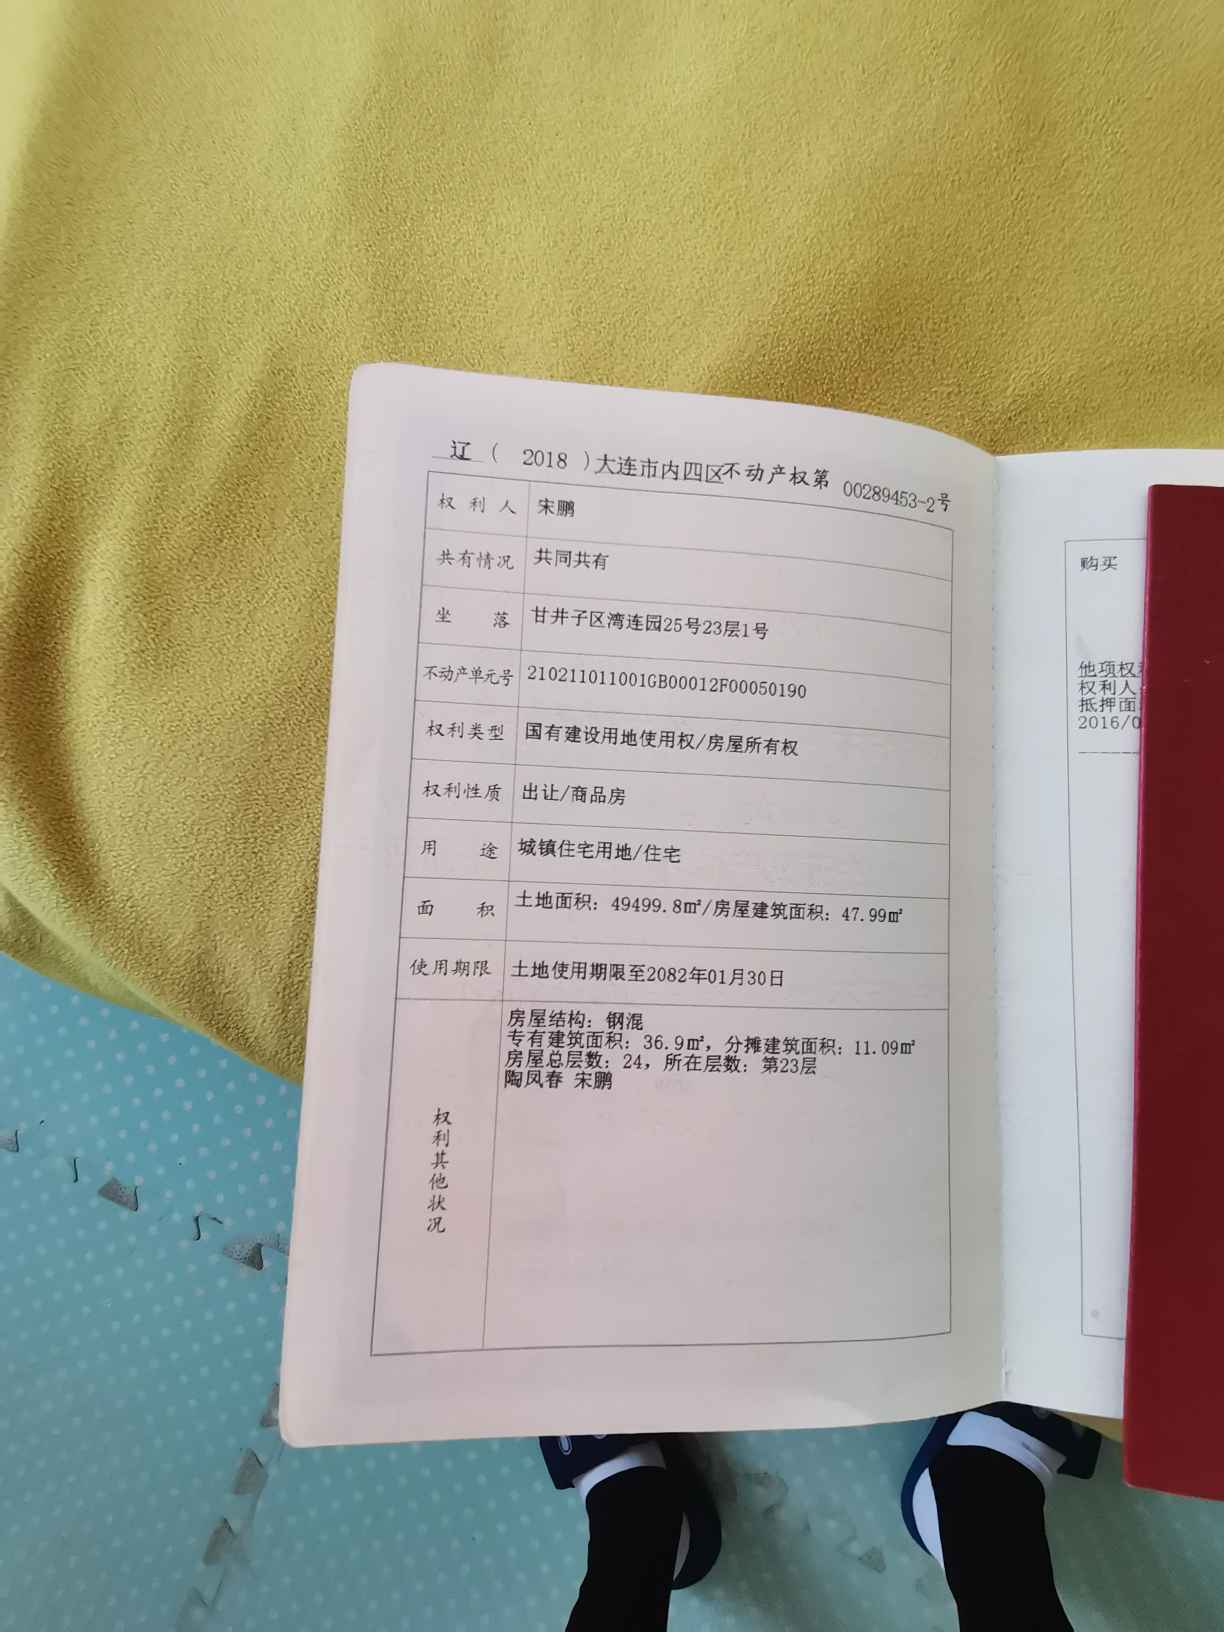 辽（ 2018 ）大连市内四区不动产权第 00289453-2号
权利人 宋鹏
共有情况 共同共有
坐落 甘井子区湾连园25号23层1号
不动产单元号 210211011001GB00012F00050190
权利类型 国有建设用地使用权/房屋所有权
权利性质 出让/商品房
用途 城镇住宅用地/住宅
面积 土地面积：49499.8㎡/房屋建筑面积：47.99㎡
使用期限 土地使用期限至2082年01月30日
权利其他状况
房屋结构：钢混
专有建筑面积：36.9㎡，分摊建筑面积：11.09㎡
房屋总层数：24，所在层数：第23层
陶凤春 宋鹏
购买
他项权
权利人
抵押面
2016/0